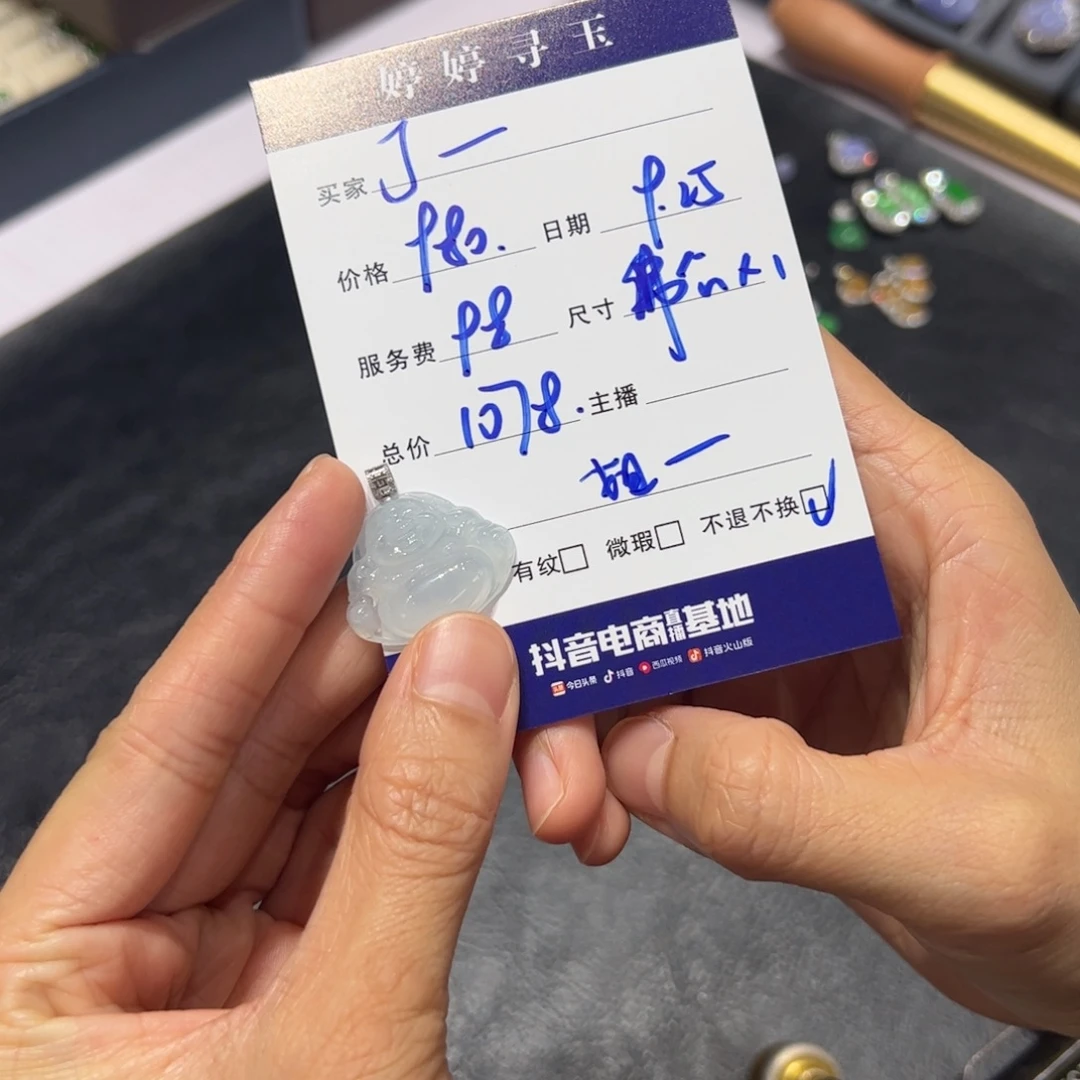 婷婷寻玉
买家 丁一
价格 980. 日期 9.25
服务费 98 尺寸
总价 1078. 主播
有纹□ 微瑕□ 不退不换☑
抖音电商直播基地
今日头条 抖音 西瓜视频 抖音火山版